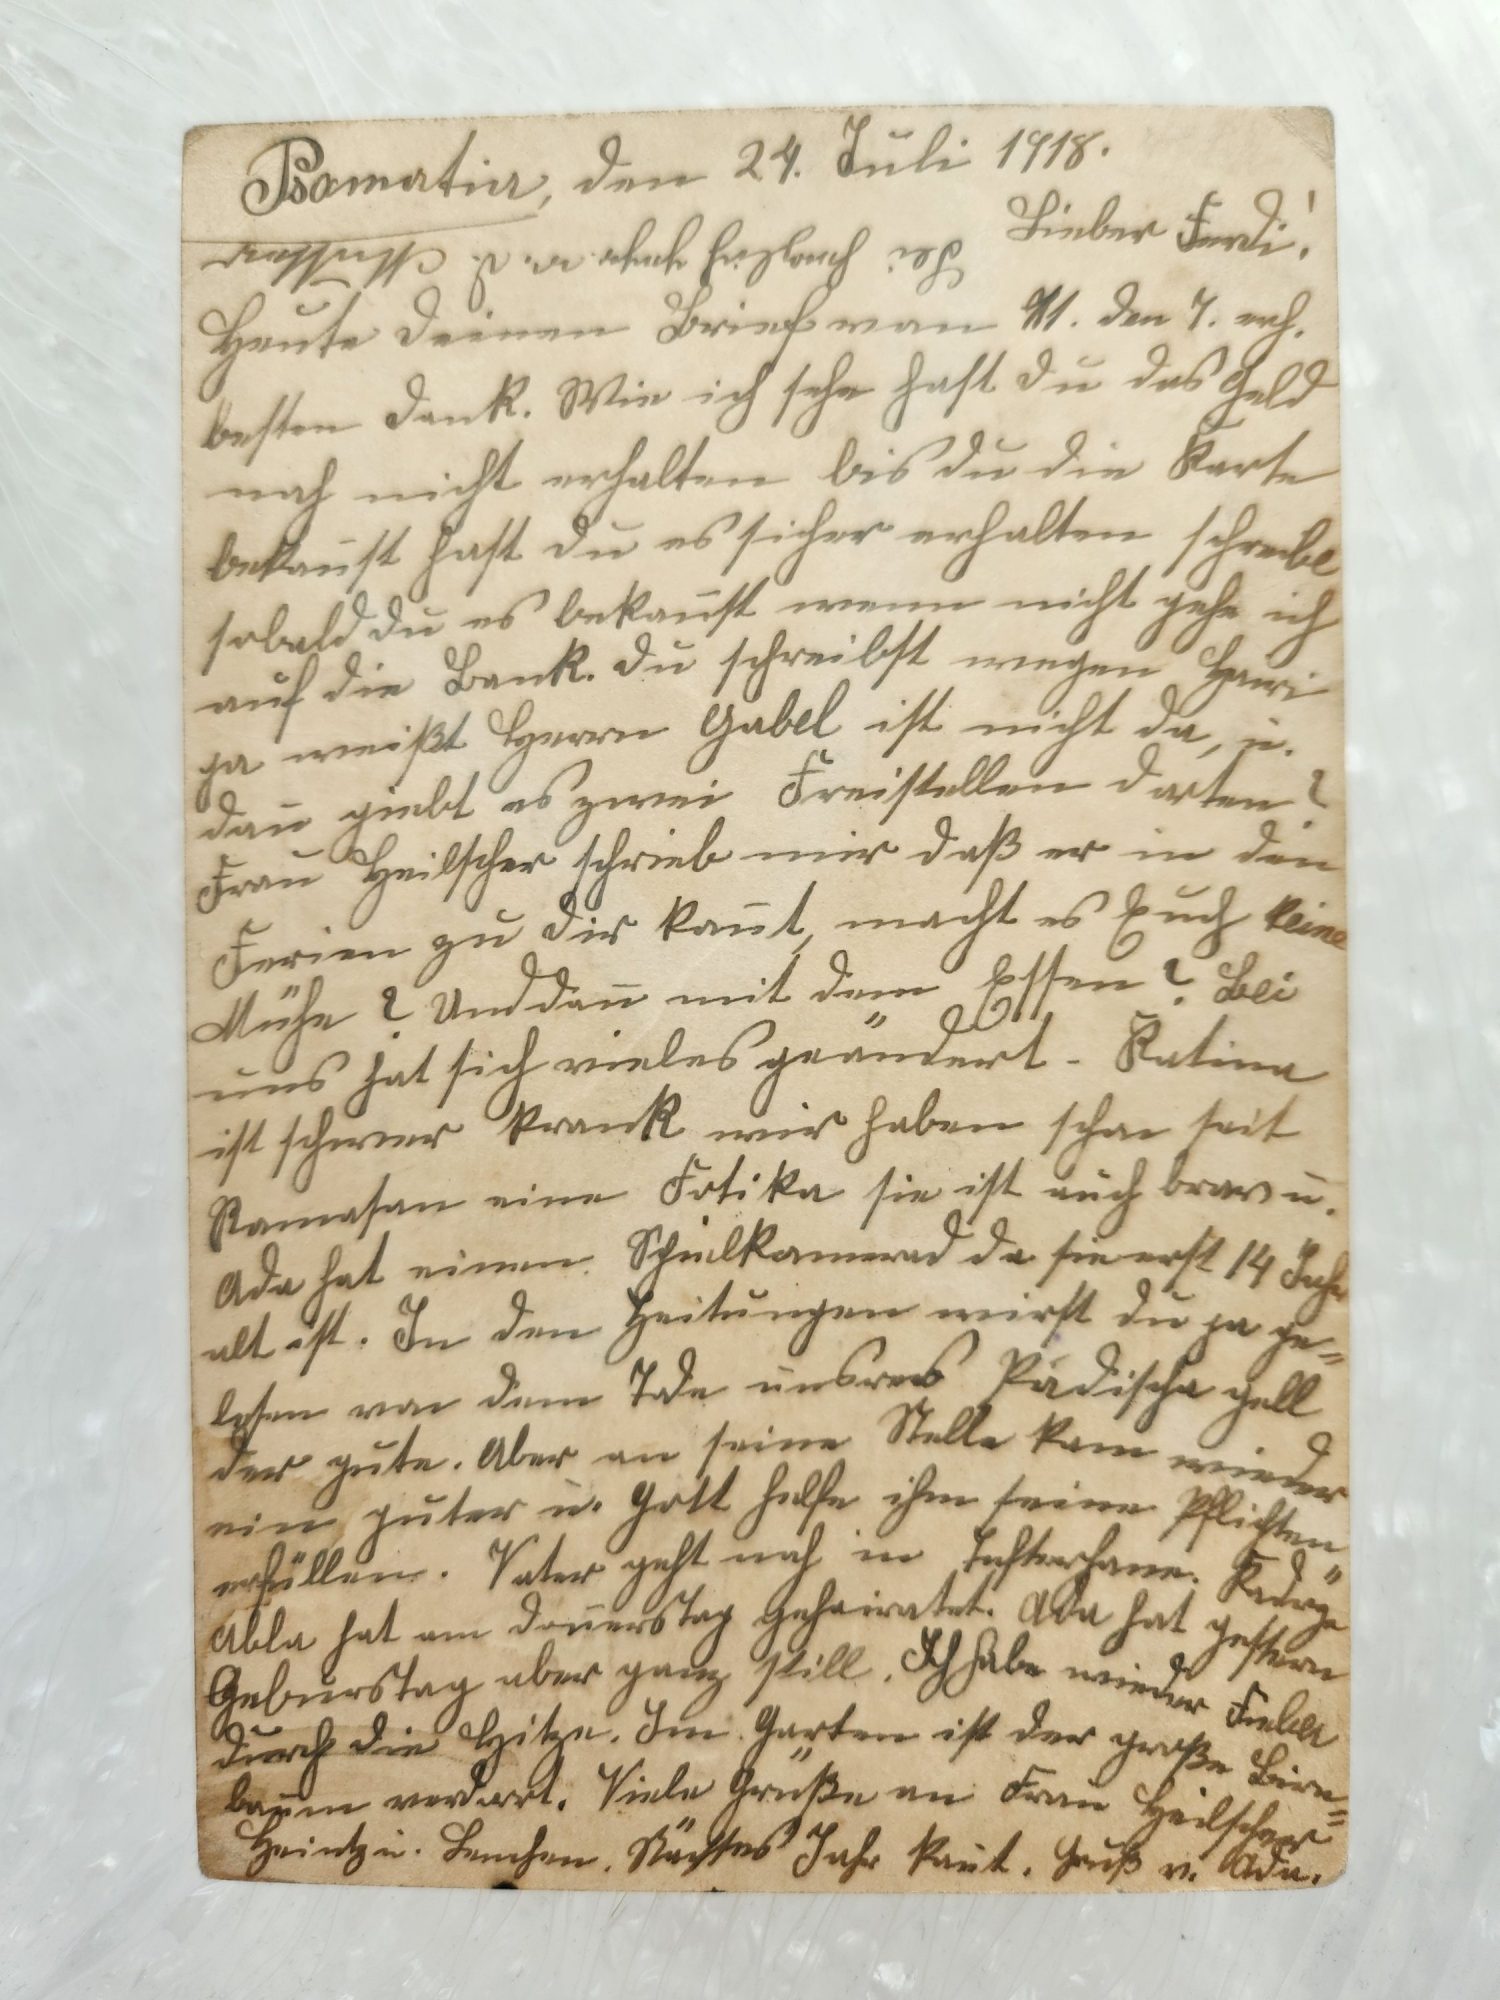 Psamatia, den 24. Juli 1918.
Lieber Ferdi!
Heute deinen Brief von 11. den 7. erh.
besten Dank. Wie ich sehe hast du das Geld
noch nicht erhalten bis du die Karte
bekom̄st hast du es sicher erhalten schreibe
sobald du es bekom̄st wenn nicht gehe ich
auf die Bank. Du schreibst wegen Heini
ja weißt Herrn Gabel ist nicht da, u.
dan̄ giebt es zwei Freistellen dorten?
Frau Heilscher schrieb mir daß er in den
Ferien zu dir kom̄t, macht es Euch keine
Mühe? Und dan̄ mit dem Essen? Bei
uns hat sich vieles geändert - Katina
ist schwer krank wir haben schon seit
Ramasan eine Fotika sie ist auch brav u.
Ada hat einen Spielkamerad da sie erst 14 Jahr
alt ist. In den Zeitungen wirst du ja ge=
lesen von dem Tode unsres Pādischa gell
der gute. Aber an seine Stelle kam wieder
ein guter u. Gott helfe ihm seine Pflichten
erfüllen. Vater geht noch in
Abla hat am Don̄erstag geheiratet. Ada hat gestern
Geburstag aber ganz still. Ich habe wieder Fieber
durch die Hitze. Im Garten ist der große Birn=
baum verdorrt. Viele Grüße an Frau Heilscher
Heintz u. Lenchen. Nächtes Jahr kom̄t. Gruß v. Ada.